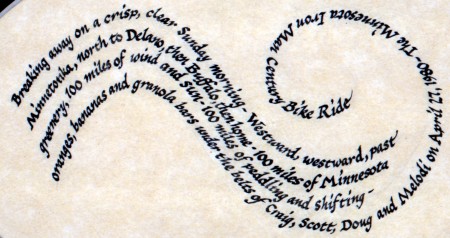 Breaking away on a crisp, clear Sunday morning - Westward, westward, past
Minnetonka, north to Delano, then Buffalo, then home - 100 miles of Minnesota
greenery, 100 miles of wind and sun - 100 miles of paddling and shifting -
oranges, bananas and granola bars under the belts of Craig, Scott, Doug and Melodi on April 27, 1980 - The Minnesota Iron Man Century Bike Ride